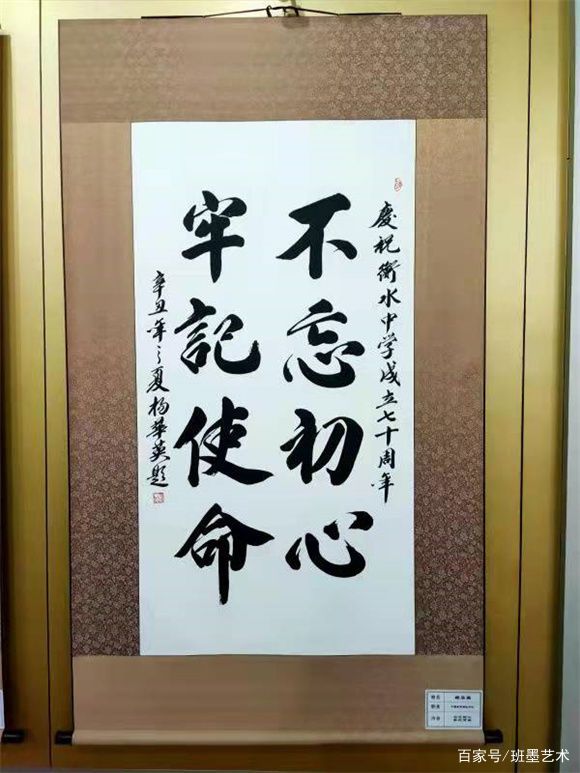 慶祝衡水中学成立七十周年
不忘初心
牢記使命
辛丑年之夏杨華英題
百家号/班墨艺术